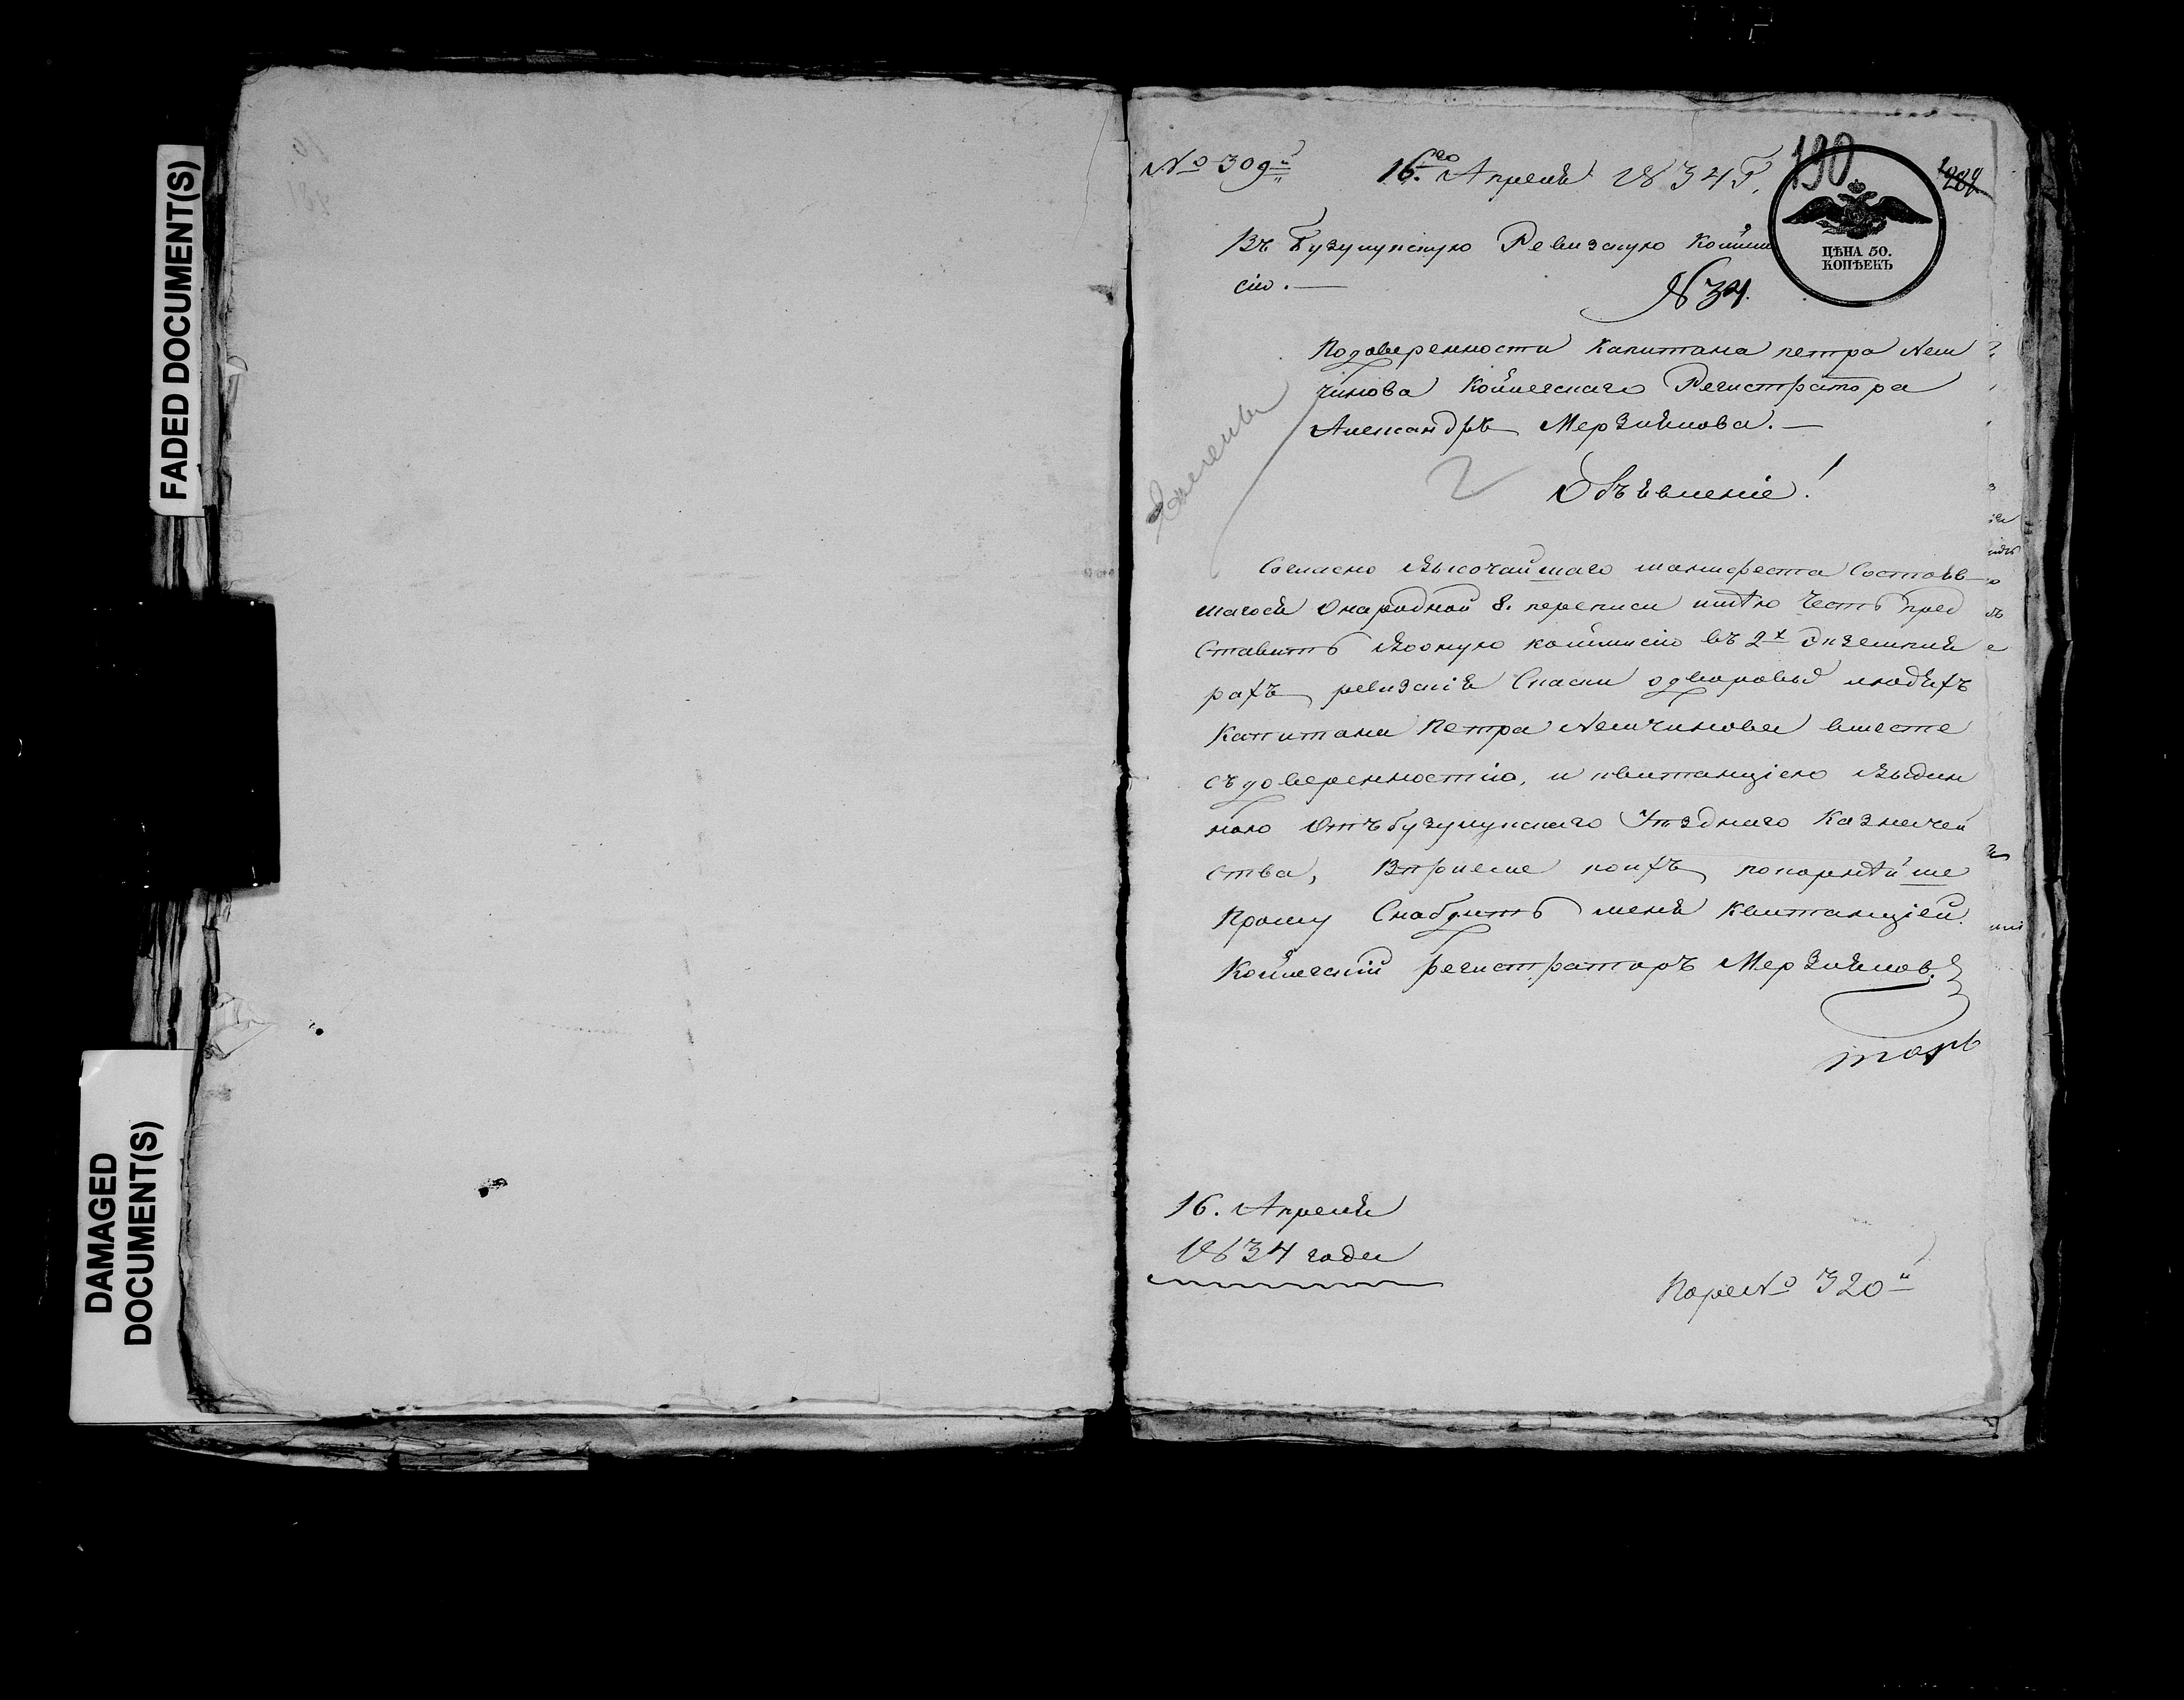 FADED DOCUMENT(S)
DAMAGED
DOCUMENT(S)
№ 309й
16.го Апреля 1834 Г.
190
ЦѢНА 50.
КОПѢЕКЪ
Въ Бузулускую Ревизскую Комми
сію. —
№ 34.
Подоверенности Капитана петра Нем
чинова Коллегскаго Регистратора
Александра Мерзлякова. —
2
Объявленіе!
Согласно Высочайшаго манифеста Состояв
шагося Онародной 8. переписи имѣю Честь пред
Ставить Вооную коммисію въ 2х Экземпля
рахъ ревизскія Сказки одворовыд людяхъ
Капитана Петра Немчинова вместе
съ доверенностію, и квитанціею Выдан
ною Отъ бузулускаго Уѣзднаго Казначей
ства, Впріеме коихъ покорнѣйше
Прошу Снабдить меня Квитанціей.
Коллегскій регистраторъ Мерзляков.
16. Апреля
1834 года
Пореи№ 320й